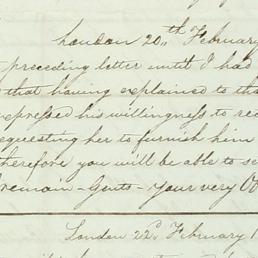 London 20th February
preceding letter until I had
that having explained to tha
expressed his willingness to re
requesting her to furnish him
therefore you will be able to se
remain - Gents - Your very Ob
London 22d February 1